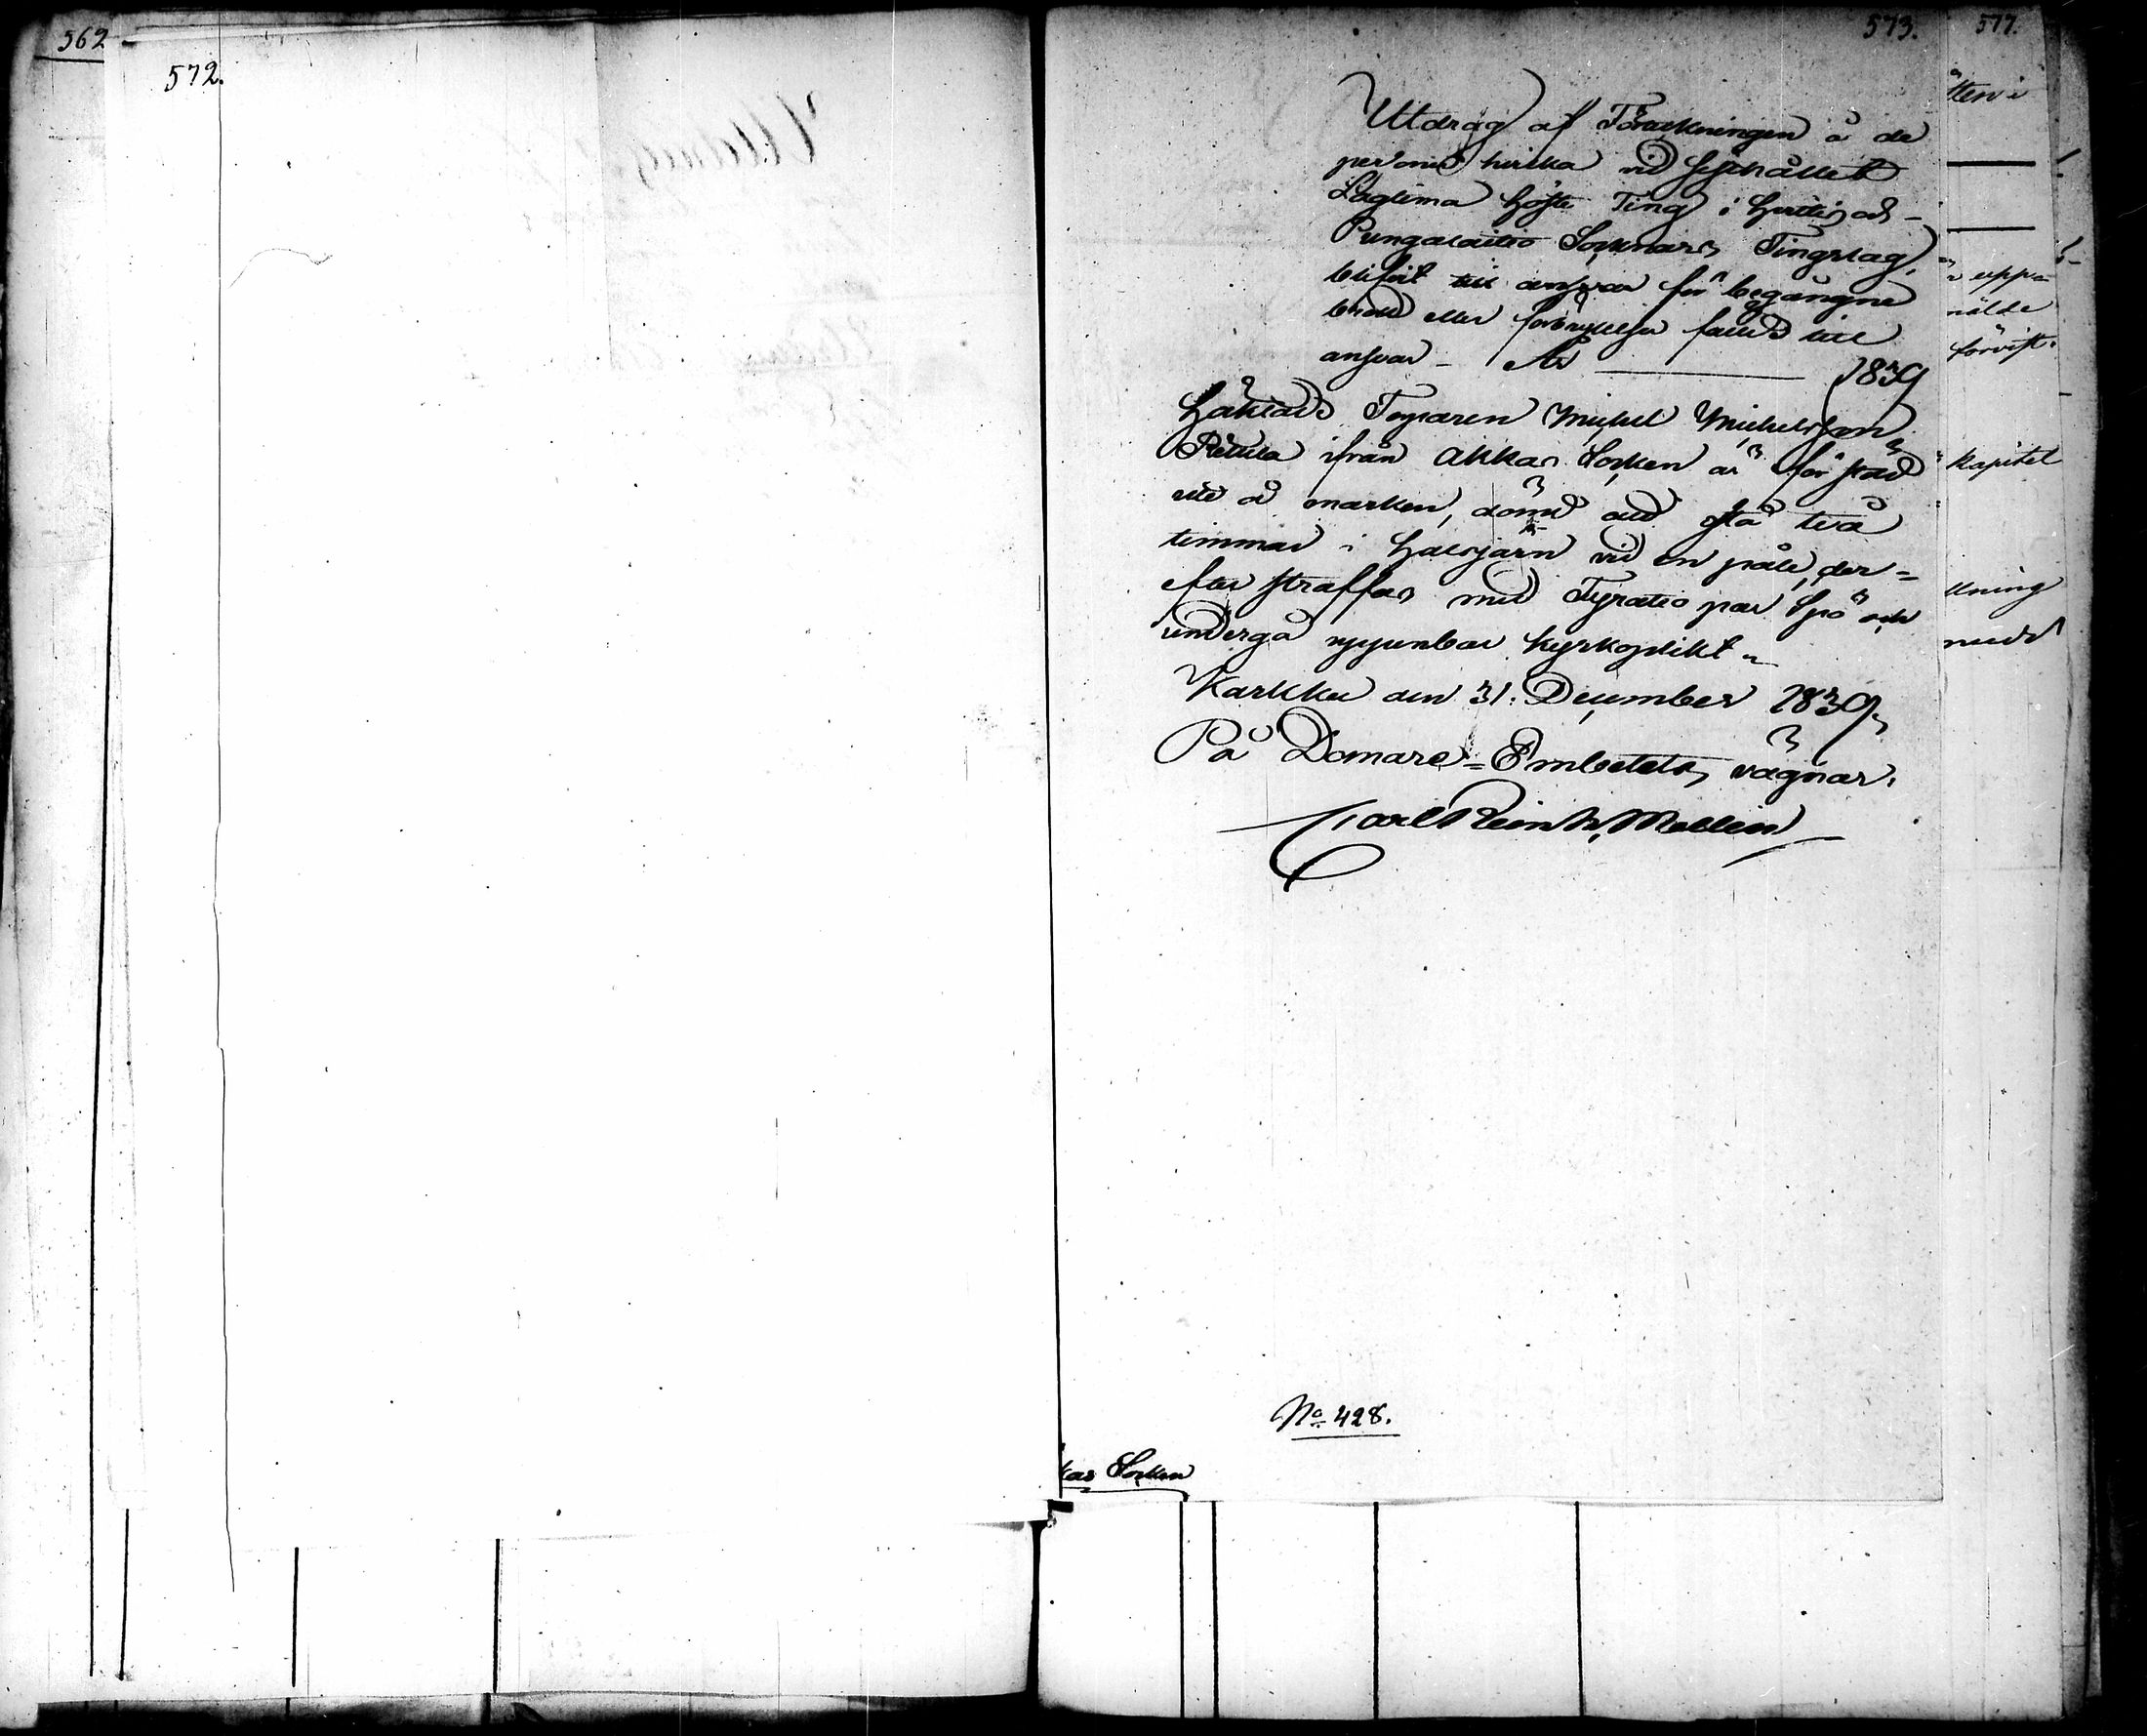 562
572.
573.
577.
Utdrag af Förteckningen å de
personer hvilka vid sisthållet
Lagtima Höste Ting i Hvittis och
Pungalaitio Socknars Tingslag,
blifvit till ansvar för begångne
brott eller förbrytelser fällde till
ansvar - År 1839
Häktade Torparen Michel Michelsson
Retula ifrån Akkas Socken är för stöld
ute å marken, dömd att stå två
timmar i halsjärn vid en påle, der=
efter straffas med Fyratio par Spö och
undergå uppenbar kyrkoplikt.
Karkku den 31. December 1839.
På Domare=Embetets vägnar.
Carl Reinh. Mollin
No 428.
kas Socken
tten i
upp=
förvist.
Kapitel